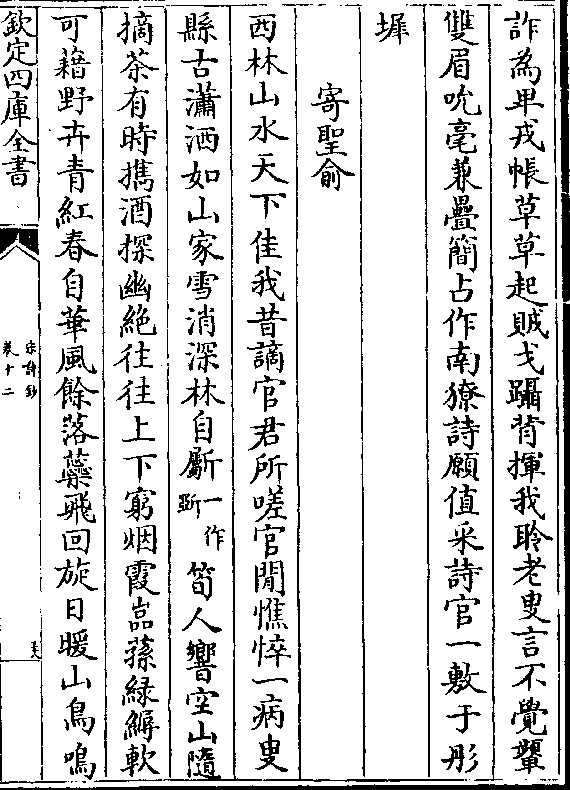 詐為卑戎帳草草起賊戈躡背揮我聆老叟言不覺顰
雙眉吮毫兼疊簡占作南獠詩願值采詩官一敷于彤
墀
寄聖俞
西林山水天下佳我昔謫官君所嗟官閒憔悴一病叟
縣古瀟洒如山家雪消深林自劚一作斲筍人響空山隨
摘茶有時攜酒探幽絶往往上下窮烟霞嵓蓀緑縟軟
可藉野卉青紅春自華風餘落蘂飛回旋日暖山鳥鳴
欽定四庫全書
宋詩鈔
卷十二